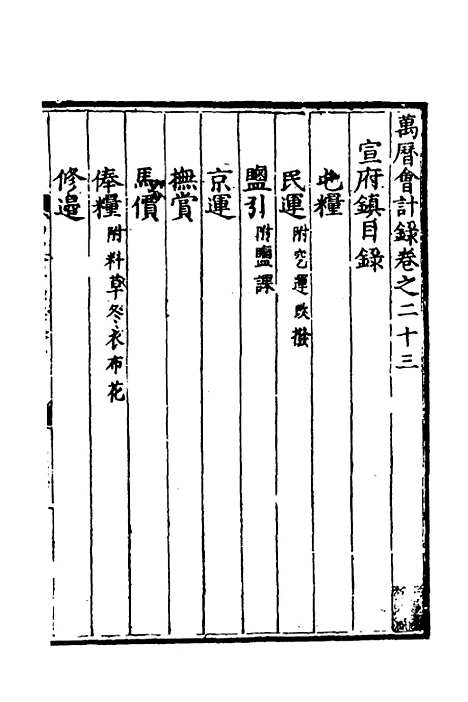 萬曆會計錄卷之二十三
宣府鎮目錄
屯糧
民運附空運改撥
鹽引附鹽課
京運
撫賞
馬價
俸糧附料草冬衣布花
修邊